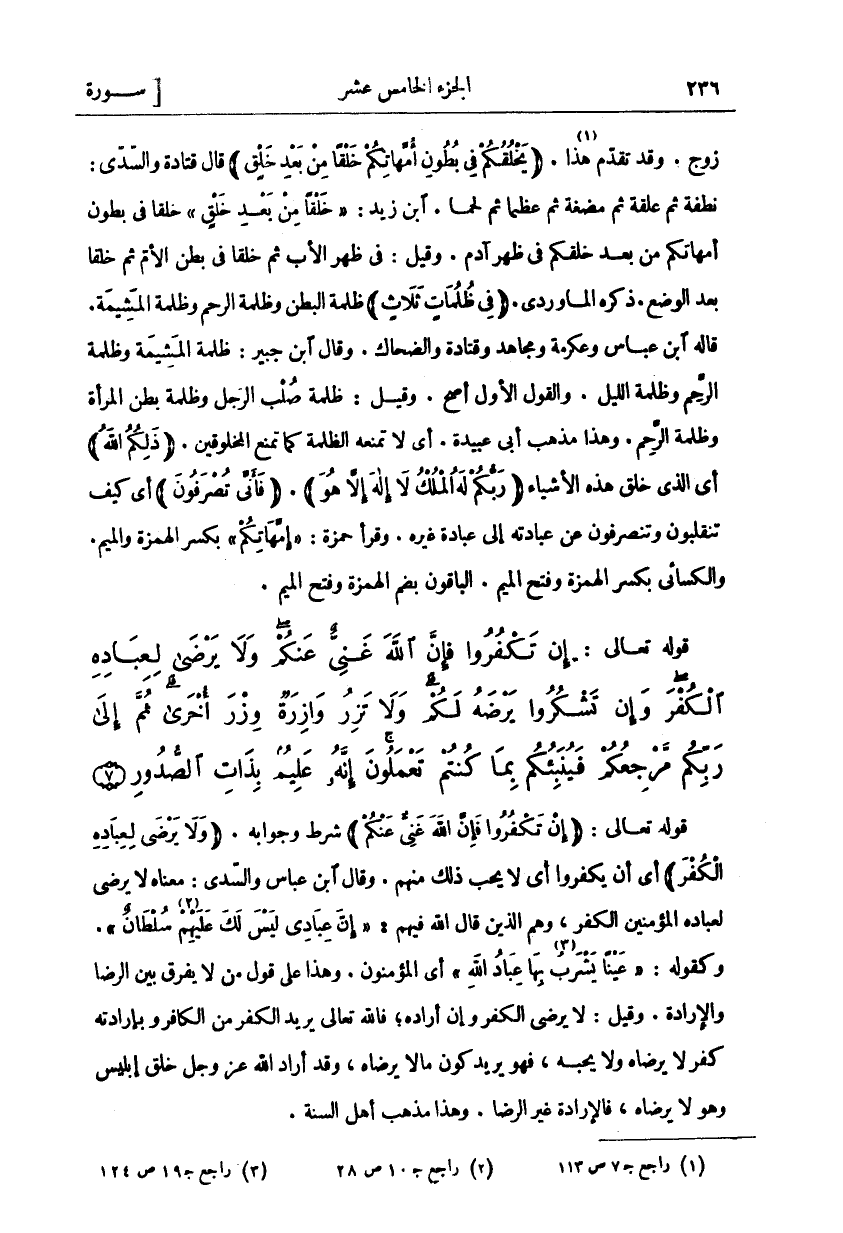 ٢٣٦ الجزء الخامس عشر [ ســورة
زوج . وقد تقدّم هذا (١) . ﴿ يَخْلُقُكُمْ فِى بُطُونِ أُمَّهَاتِكُمْ خَلْقًا مِنْ بَعْدِ خَلْقٍ ﴾ قال قتادة والسّدّى :
نطفة ثم علقة ثم مضغة ثم عظما ثم لحمـا . آبن زيد : « خَلْقًا مِنْ بَعْـدِ خَلْقٍ » خلقا فى بطون
أمهاتكم من بعـد خلقكم فى ظهر آدم . وقيل : فى ظهر الأب ثم خلقا فى بطن الأم ثم خلقا
بعد الوضع . ذكره المـاوردى . ﴿ فِى ظُلُمَاتٍ ثَلَاثٍ ﴾ ظلمة البطن وظلمة الرحم وظلمة المَشِيمَة .
قاله آبن عبـاس وعكرمة ومجاهد وقتادة والضحاك . وقال آبن جبير : ظلمة المَشِيمَة وظلمة
الرَّحِم وظلمة الليل . والقول الأول أصح . وقيـل : ظلمة صُلْب الرَجل وظلمة بطن المرأة
وظلمة الرَّحِم . وهذا مذهب أبى عبيدة . أى لا تمنعه الظلمة كما تمنع المخلوقين . ﴿ ذَلِكُمُ اللَّهُ ﴾
أى الذى خلق هذه الأشياء ﴿ رَبُّكُمْ لَهُ الْمُلْكُ لَا إِلَهَ إِلَّا هُوَ ﴾ . ﴿ فَأَنَّى تُصْرَفُونَ ﴾ أى كيف
تنقلبون وتنصرفون عن عبادته إلى عبادة غيره . وقرأ حمزة : « إِمَّهَاتِكُمْ » بكسر الهمزة والميم .
والكسائى بكسر الهمزة وفتح الميم . الباقون بضم الهمزة وفتح الميم .
قوله تعـالى : إِن تَكْفُرُوا فَإِنَّ ٱللَّهَ غَنِىٌّ عَنكُمْ وَلَا يَرْضَىٰ لِعِبَـادِهِ
ٱلْكُفْرَ وَإِن تَشْكُرُوا يَرْضَهُ لَكُمْ وَلَا تَزِرُ وَازِرَةٌ وِزْرَ أُخْرَىٰ ثُمَّ إِلَىٰ
رَبِّكُم مَّرْجِعُكُمْ فَيُنَبِّئُكُم بِمَا كُنتُمْ تَعْمَلُونَ إِنَّهُۥ عَلِيمٌۢ بِذَاتِ ٱلصُّدُورِ ﴿٧﴾
قوله تعـالى : ﴿ إِنْ تَكْفُرُوا فَإِنَّ اللَّهَ غَنِىٌّ عَنْكُمْ ﴾ شرط وجوابه . ﴿ وَلَا يَرْضَى لِعِبَادِهِ
الْكُفْرَ ﴾ أى أن يكفروا أى لا يحب ذلك منهم . وقال آبن عباس والسّدى : معناه لا يرضى
لعباده المؤمنين الكفر ، وهم الذين قال الله فيهم : « إِنَّ عِبَادِى لَيْسَ لَكَ عَلَيْهِمْ (٢) سُلْطَانٌ » .
وكقوله : « عَيْنًا يَشْرَبُ (٣) بِهَا عِبَادُ اللَّهِ » أى المؤمنون . وهذا على قول من لا يفرق بين الرضا
والإرادة . وقيل : لا يرضى الكفر وإن أراده؛ فالله تعالى يريد الكفر من الكافر وبإرادته
كفر لا يرضاه ولا يحبـه ، فهو يريد كون مالا يرضاه ، وقد أراد الله عز وجل خلق إبليس
وهو لا يرضاه ، فالإرادة غير الرضا . وهذا مذهب أهل السنة .
(١) راجع جـ ٧ ص ١١٣ (٢) راجع جـ ١٠ ص ٢٨ (٣) راجع جـ ١٩ ص ١٢٤